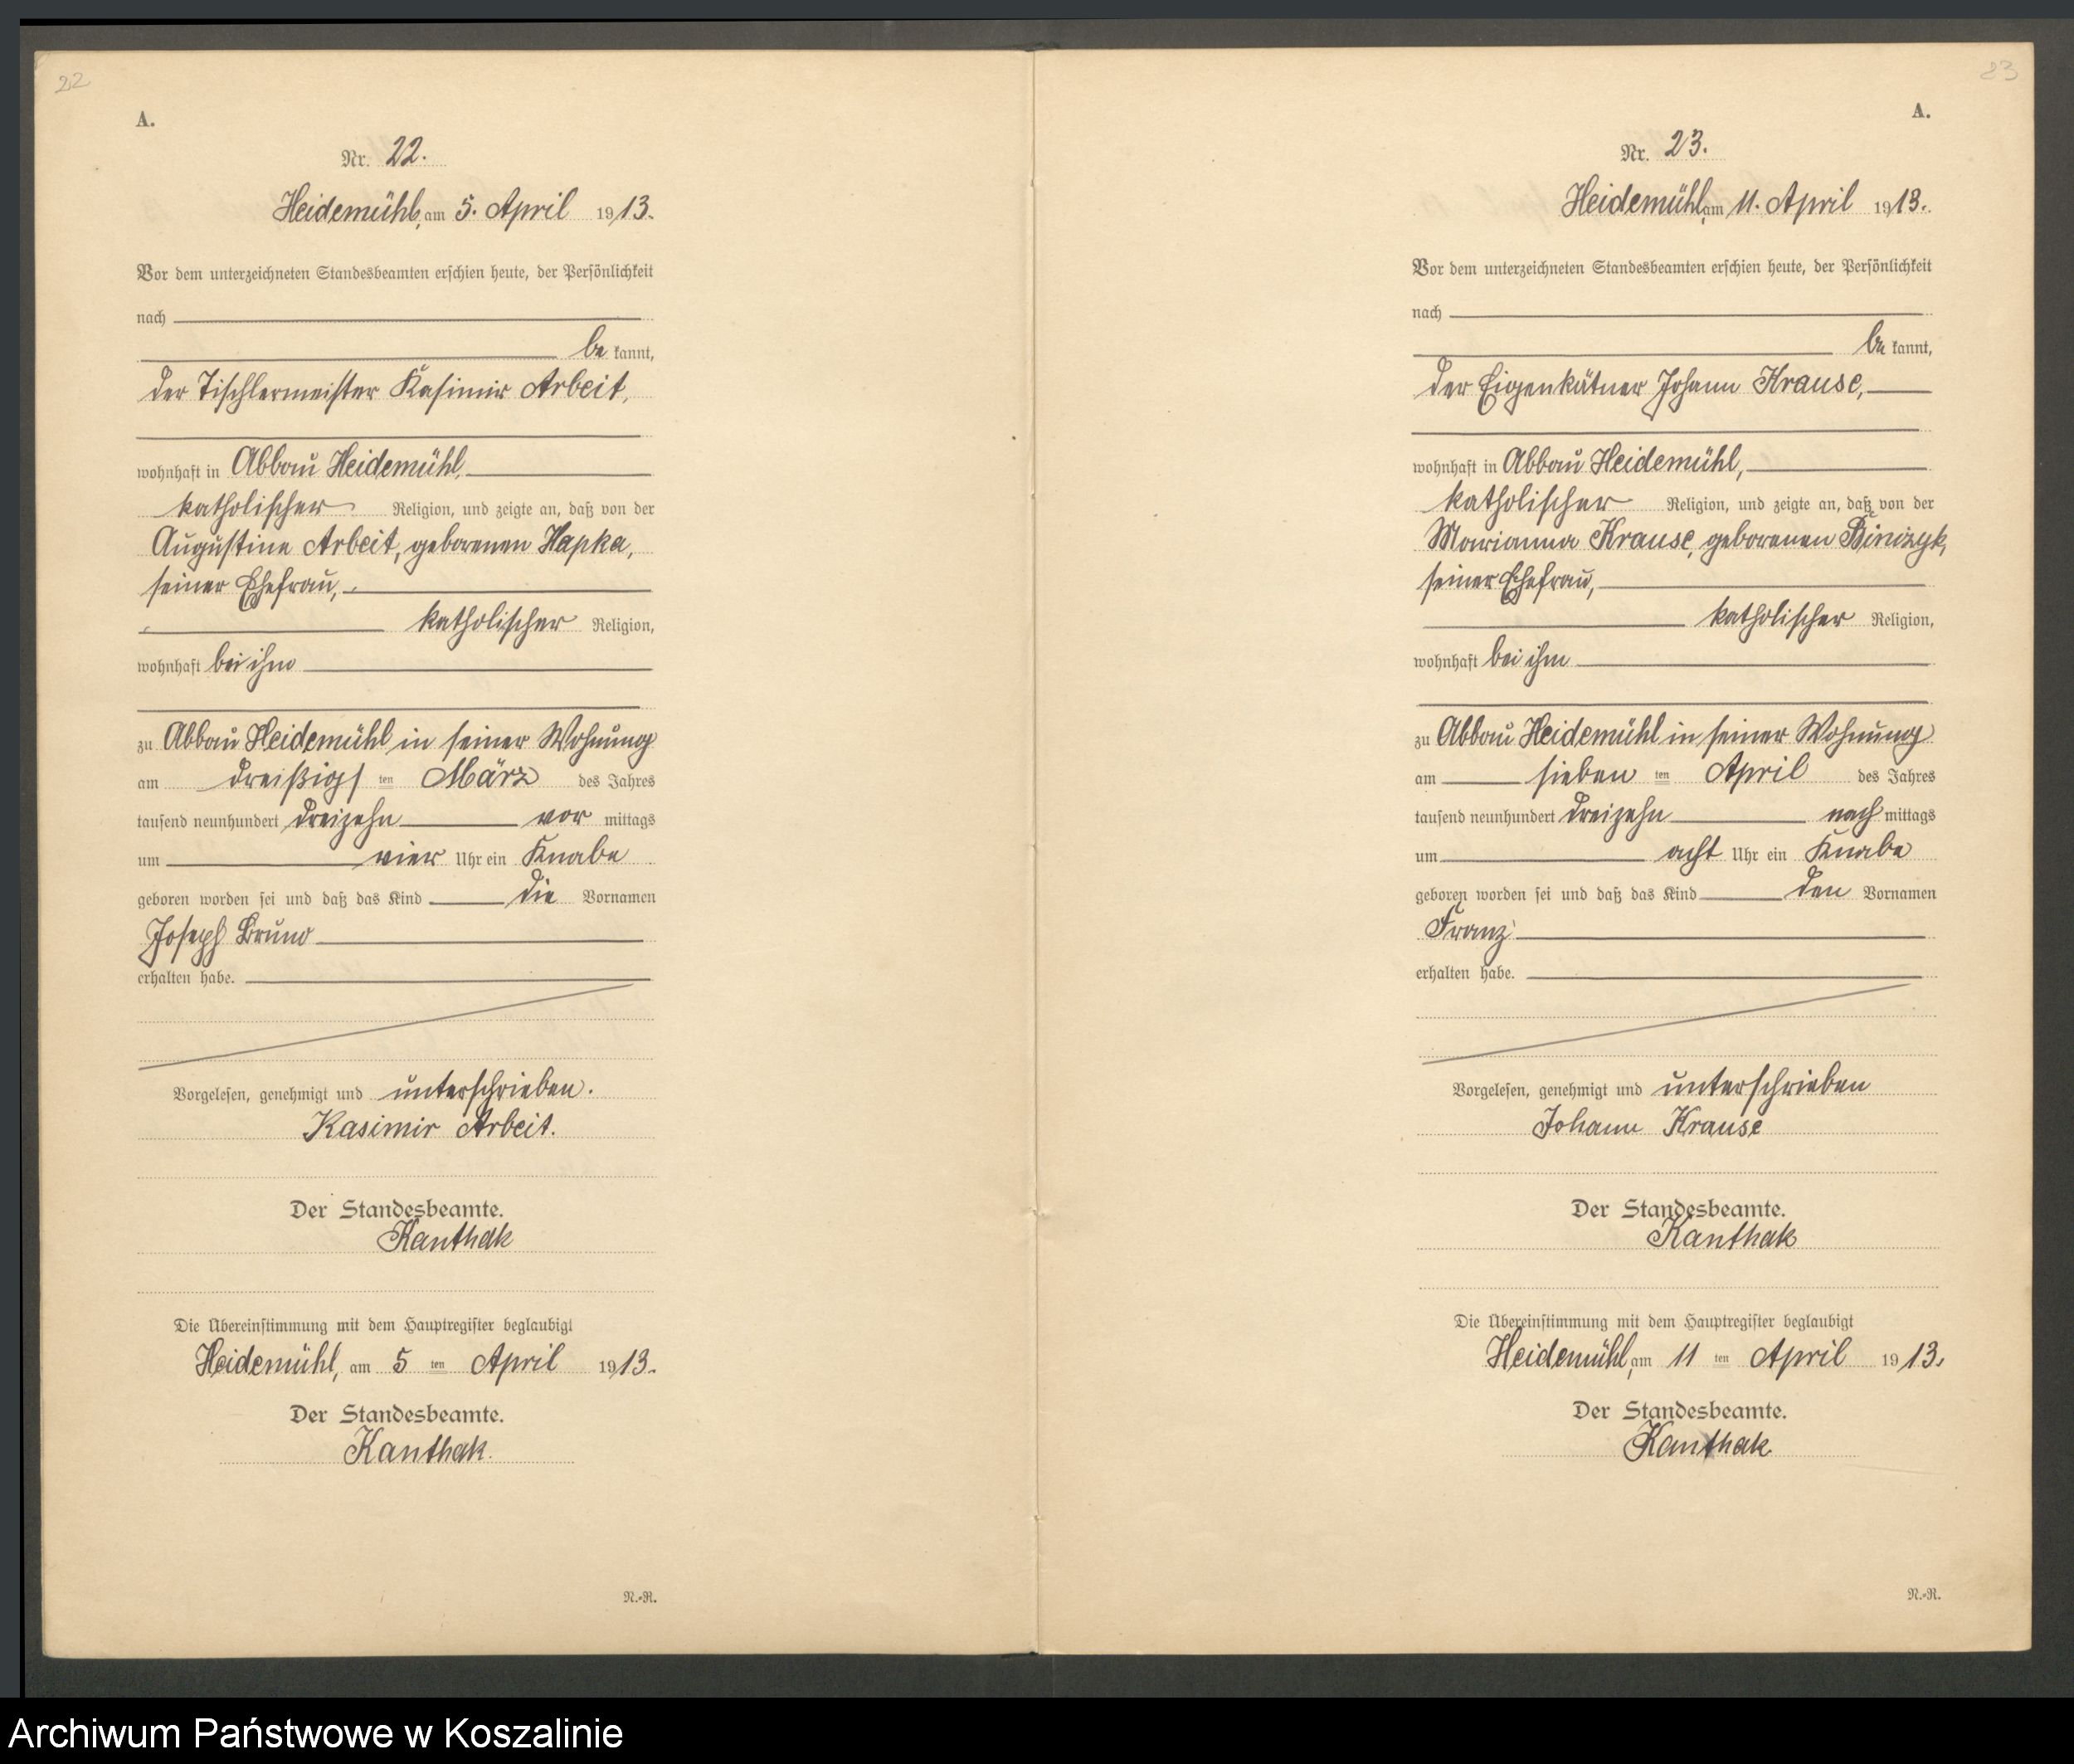 22
A.
Nr. 22.
Heidemühl, am 5. April 1913.
Vor dem unterzeichneten Standesbeamten erschien heute, der Persönlichkeit
nach
be kannt,
der Tischlermeister Kasimir Arbeit,
wohnhaft in Abbau Heidemühl,
katholischer Religion, und zeigte an, daß von der
Augustine Arbeit, geborenen Hapka,
seiner Ehefrau,
katholischer Religion,
wohnhaft bei ihm
zu Abbau Heidemühl in seiner Wohnung
am dreißigs ten März des Jahres
tausend neunhundert dreizehn vor mittags
um vier Uhr ein Knabe
geboren worden sei und daß das Kind die Vornamen
Joseph Bruno
erhalten habe.
Vorgelesen, genehmigt und unterschrieben.
Kasimir Arbeit.
Der Standesbeamte.
Kanthak
Die Übereinstimmung mit dem Hauptregister beglaubigt
Heidemühl, am 5 ten April 1913.
Der Standesbeamte.
Kanthak.
N.-R.
23
A.
Nr. 23.
Heidemühl, am 11. April 1913.
Vor dem unterzeichneten Standesbeamten erschien heute, der Persönlichkeit
nach
be kannt,
der Eigenkätner Johann Krause,
wohnhaft in Abbau Heidemühl,
katholischer Religion, und zeigte an, daß von der
Marianna Krause, geborenen Binczyk,
seiner Ehefrau,
katholischer Religion,
wohnhaft bei ihm
zu Abbau Heidemühl in seiner Wohnung
am sieben ten April des Jahres
tausend neunhundert dreizehn nach mittags
um acht Uhr ein Knabe
geboren worden sei und daß das Kind den Vornamen
Franz
erhalten habe.
Vorgelesen, genehmigt und unterschrieben
Johann Krause
Der Standesbeamte.
Kanthak
Die Übereinstimmung mit dem Hauptregister beglaubigt
Heidemühl, am 11 ten April 1913.
Der Standesbeamte.
Kanthak
N.-R.
Archiwum Państwowe w Koszalinie